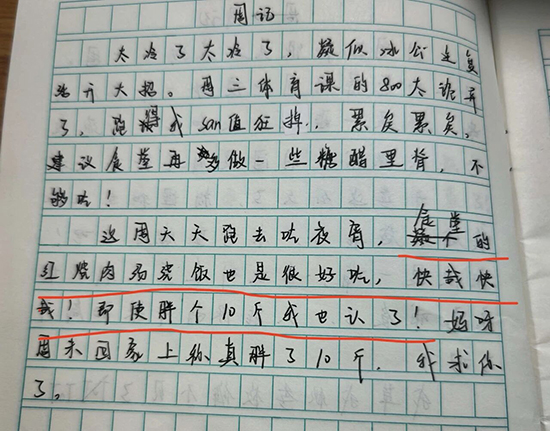 周记
太冷了太冷了，疑似冰公主复
活开大招。周三体育课的800太诡异
了，跑得我san值狂掉，累矣累矣，
建议食堂再多做一些糖醋里脊，不
够吃！
这周天天跑去吃夜宵，食堂的
红烧肉石烧饭也是很好吃，快哉快
哉！即使胖个10斤我也认了！妈呀
周末回家上称真胖了10斤，我求你
了。